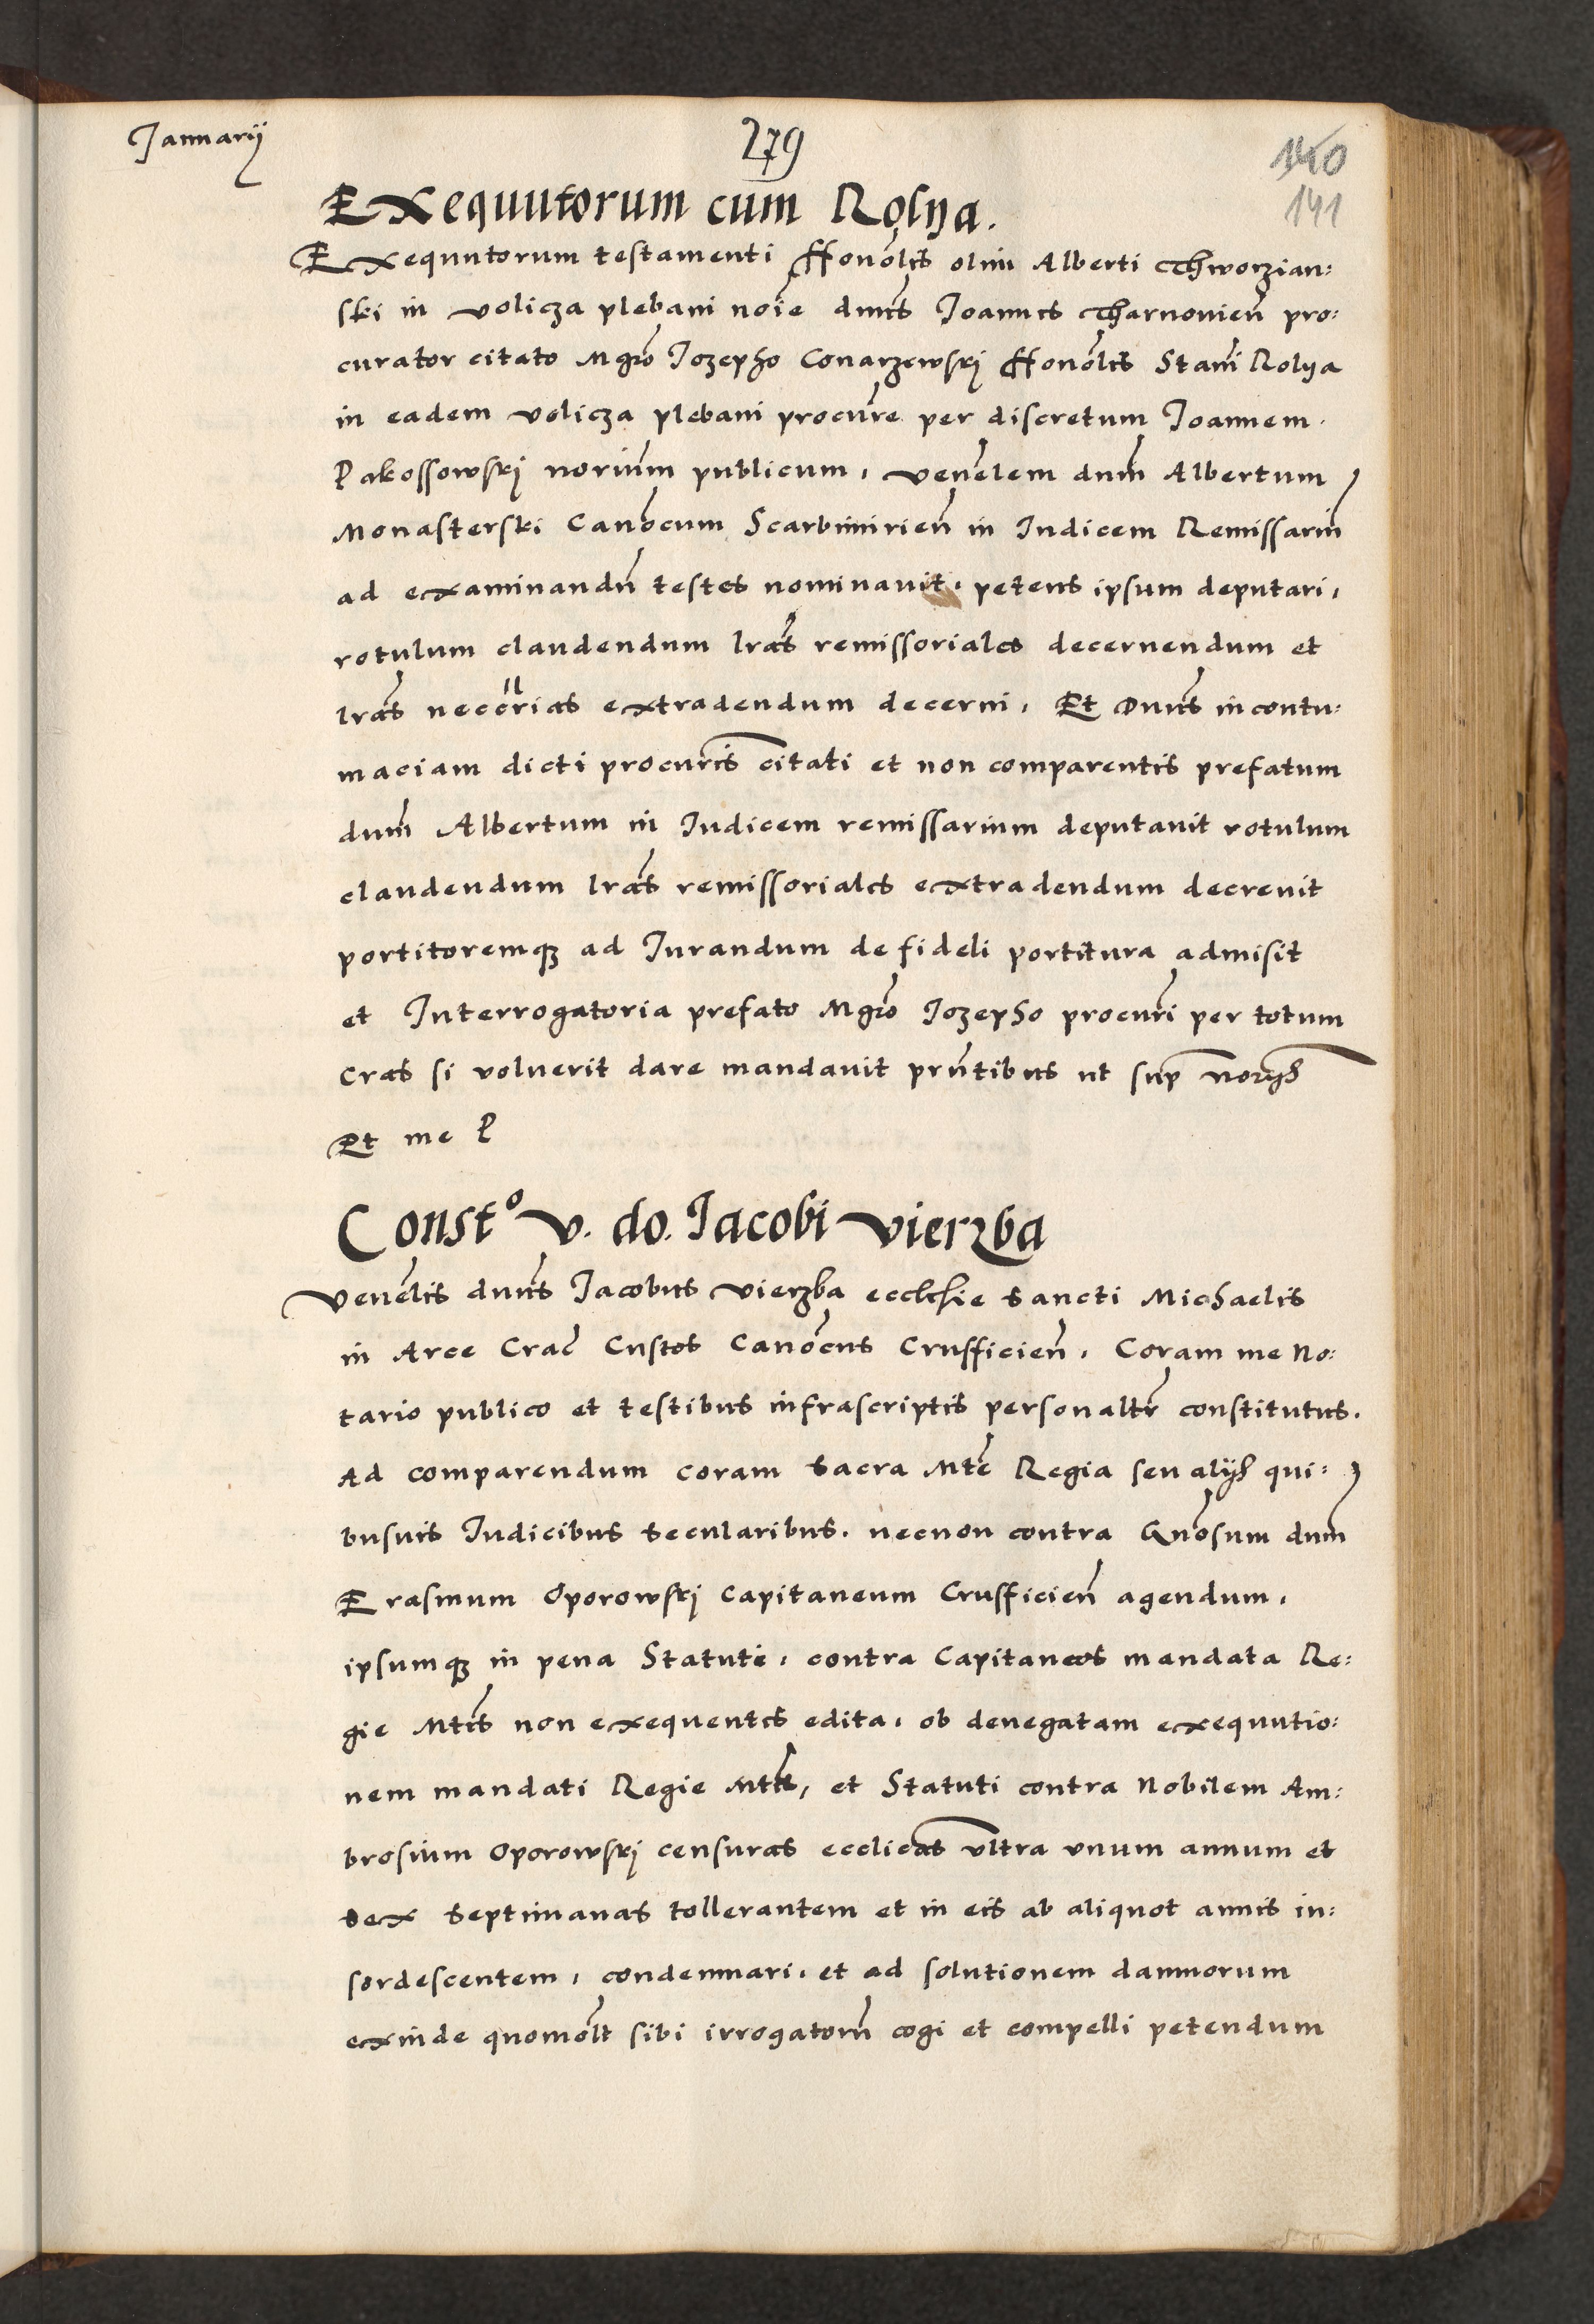 Januarij
279
140
141
Exequutorum cum Rolya.
Exequutorum testamenti Honôlis olim Alberti Thworzian:
ski in Volicza plebani noîe dnûs Joannes Tharnovien̄ pro:
curator citato Mgrô Jozepho Conarzewskj Honôlis Stanî Rolya
in eadem Volicza plebani procur̂e per discretum Joannem
Pakossowskj noriûm publicum, venêlem dnûm Albertum
Monasterski Canôcum Scarbimirien̄ in Judicem Remissariū
ad examinandū testes nominavit, petens ipsum deputari,
rotulum claudendum lrâs remissoriales decernendum et
lrâs necc̄rias extradendum decerni, Et Dnûs in contu:
maciam dicti procur̂is citati et non comparentis prefatum
dnûm Albertum in Judicem remissarium deputavit rotulum
claudendum lrâs remissoriales extradendum decrevit
portitoremqꝫ ad Jurandum de fideli portitura admisit
et Interrogatoria prefato Mgrô Jozepho procur̂i per totum
cras si voluerit dare mandavit prn̂tibus ut sup̄ norijs
Et me P
Constº v. do. Jacobi Vierzba
Venêlis dnûs Jacobus Vierzba ecclesie sancti Michaelis
in Arce Crac̄ Custos Canôcus Crusficien̄. Coram me No:
tario publico et testibus infrascriptis personaltr̂ constitutus.
Ad comparendum coram sacra Mtê Regia seu alijs qui:
busvis Judicibus secularibus. necnon contra Gnôsum dnûm
Erasmum Oporowskj Capitaneum Crusficien̄ agendum,
ipsumqꝫ in pena Statuti, contra Capitaneos mandata Re:
gie Mtîs non exequentes edita, ob denegatam exequutio:
nem mandati Regie Mtîs, et Statuti contra Nobilem Am:
brosium Oporowskj censuras ecclicâs ultra unum annum et
sex septimanas tollerantem et in eis ab aliquot annis in:
sordescentem, condemnari, et ad solutionem damnorum
exinde quomôlt sibi irrogatorū cogi et compelli petendum